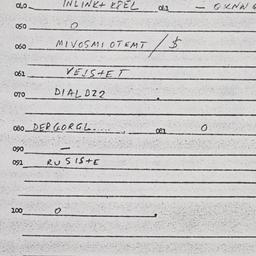 040 INLINK+ KPEL 041 —
050 0
060 MIVOSMI OTEMT / $
061 VEJS+ET
070 DIALDZ2
080 DERGORGL..... 081 0
090 —
091 RUSIS+E
100 0